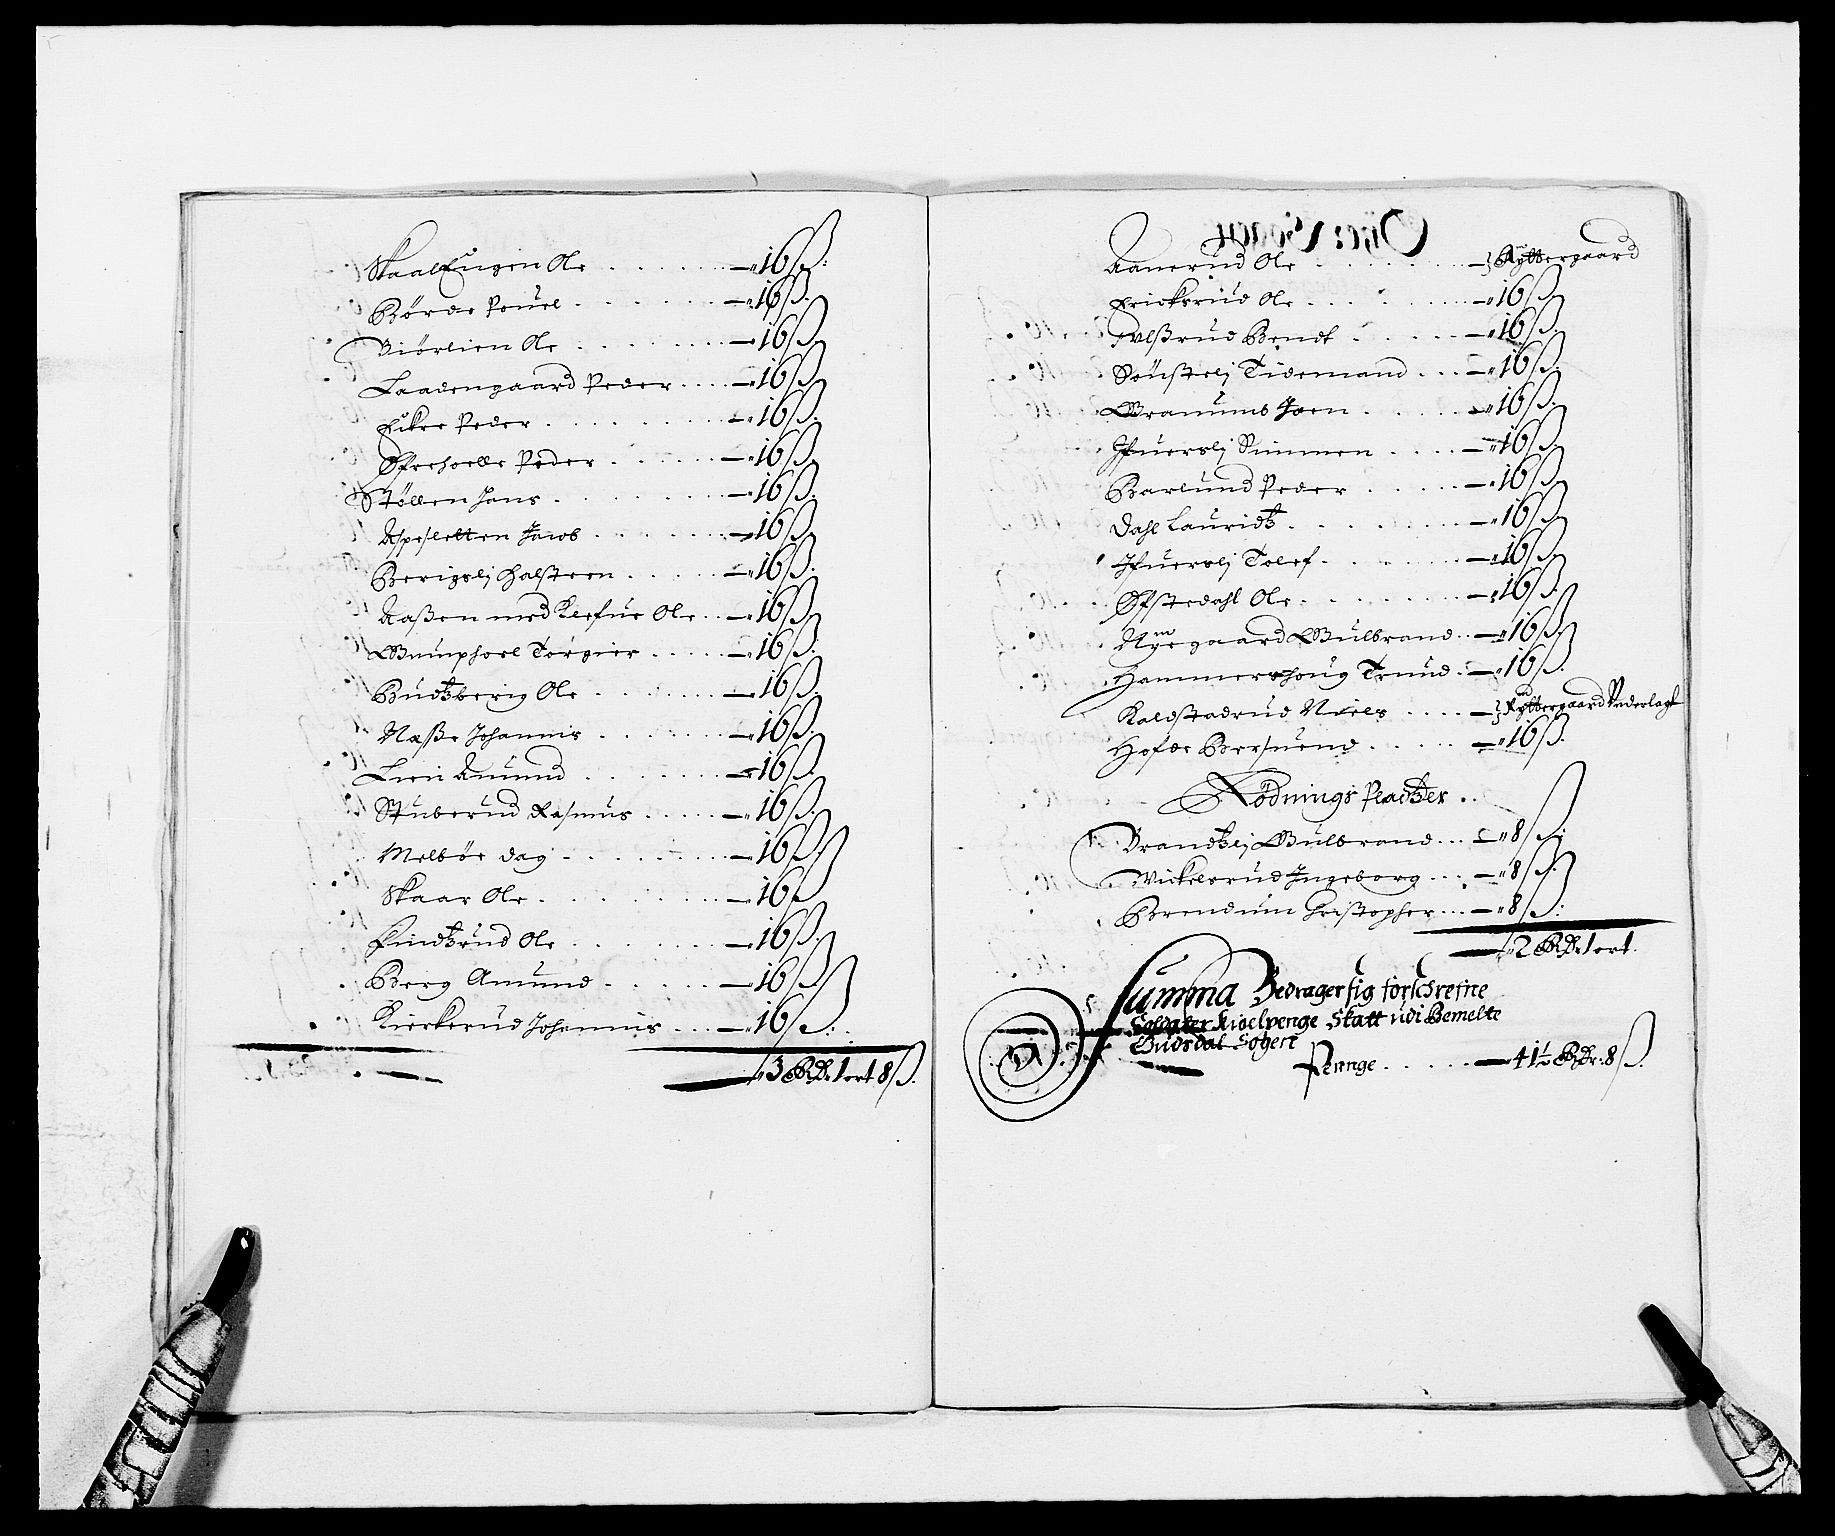 SkaalEngen Ole . . . . . . . — " 16 ß:
Börde Pouel . . . . . . . — " 16 ß.
Viörlien Ole . . . . . . . — " 16 ß.
Laadengaard Peder . . . . — " 16 ß.
Eikre Peder . . . . . . . — " 16 ß.
Ofrehoelle Peder . . . . . — " 16 ß.
Stöllen Jens . . . . . . . — " 16 ß.
Aspesletten Jacob . . . . . — " 16 ß.
Berigslj Halsteen . . . . . — " 16 ß.
Aaßen med Klefue Ole . . — " 16 ß.
Gunphoel Torgier . . . . . — " 16 ß.
Budtzberig Ole . . . . . . — " 16 ß.
Næße Johannis . . . . . . — " 16 ß.
Lien Amund . . . . . . . — " 16 ß.
Stuberud Rasmus . . . . . — " 16 ß.
Melböe dag . . . . . . . — " 16 ß.
Skaar Ole . . . . . . . . — " 16 ß
Findtzrud Ole . . . . . . — " 16 ß.
Berg Amund . . . . . . . — " 16 ß.
Kierkerud Johannis . . . . — " 16 ß.:
— " 3 Rdr 1 ort 8 ß.
Aanerud Ole . . . . . . . — } Ryttergaard
Ericksrud Ole . . . . . . — " 16 ß.
Ulßrud Bendt . . . . . . — " 16 ß.
Söustelj Tidemand . . . — " 16 ß.
Granums Joen . . . . . . — " 16 ß.
Ifuerslj Simmen . . . . . — " 16 ß.
Barlund Peder . . . . . . — " 16 ß.
Dahl Lauridtz . . . . . . — " 16 ß.
Ifuerslj Tolef . . . . . . — " 16 ß.
Ofstedahl Ole . . . . . . — " 16 ß.
Nyegaard Gulbrand . . — " 16 ß.
Hammershoug Trund . — " 16 ß.
Kaldstadrud Niels . . . . — } Ryttergaard Vnderlagt
Hofde Bersuend . . . . . — " 16 ß.
Rödnings Pladtzer . .
Brandtzlj Gulbrand . . . — " 8 ß:
Wickelsrud Ingeborg . . . — " 8 ß.
Brendum Christopher . . . — " 8 ß:
— " 2 Rdr 1 ort.
Summa Bedrager sig forschrefne
Soldater Kioelpenge Skatt udi Bemelte
Gudsdal Sogen
Penge . . . . . — 41½ Rdr: 8 ß.